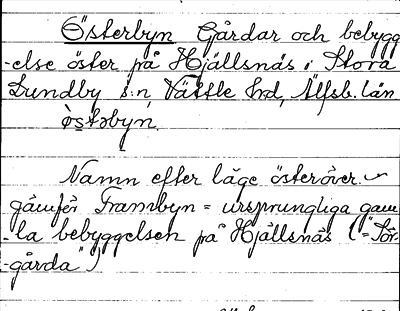 Österbyn Gårdar och bebygg
-else öster på Hjällsnäs i Stora
Lundby s:n, Vättle hd, Älfsb. län
östəbyn.
Namn efter läge österöver. ~
jämför Frambyn = ursprungliga gam
-la bebyggelsen på Hjällsnäs (="Sör-
-gårda")